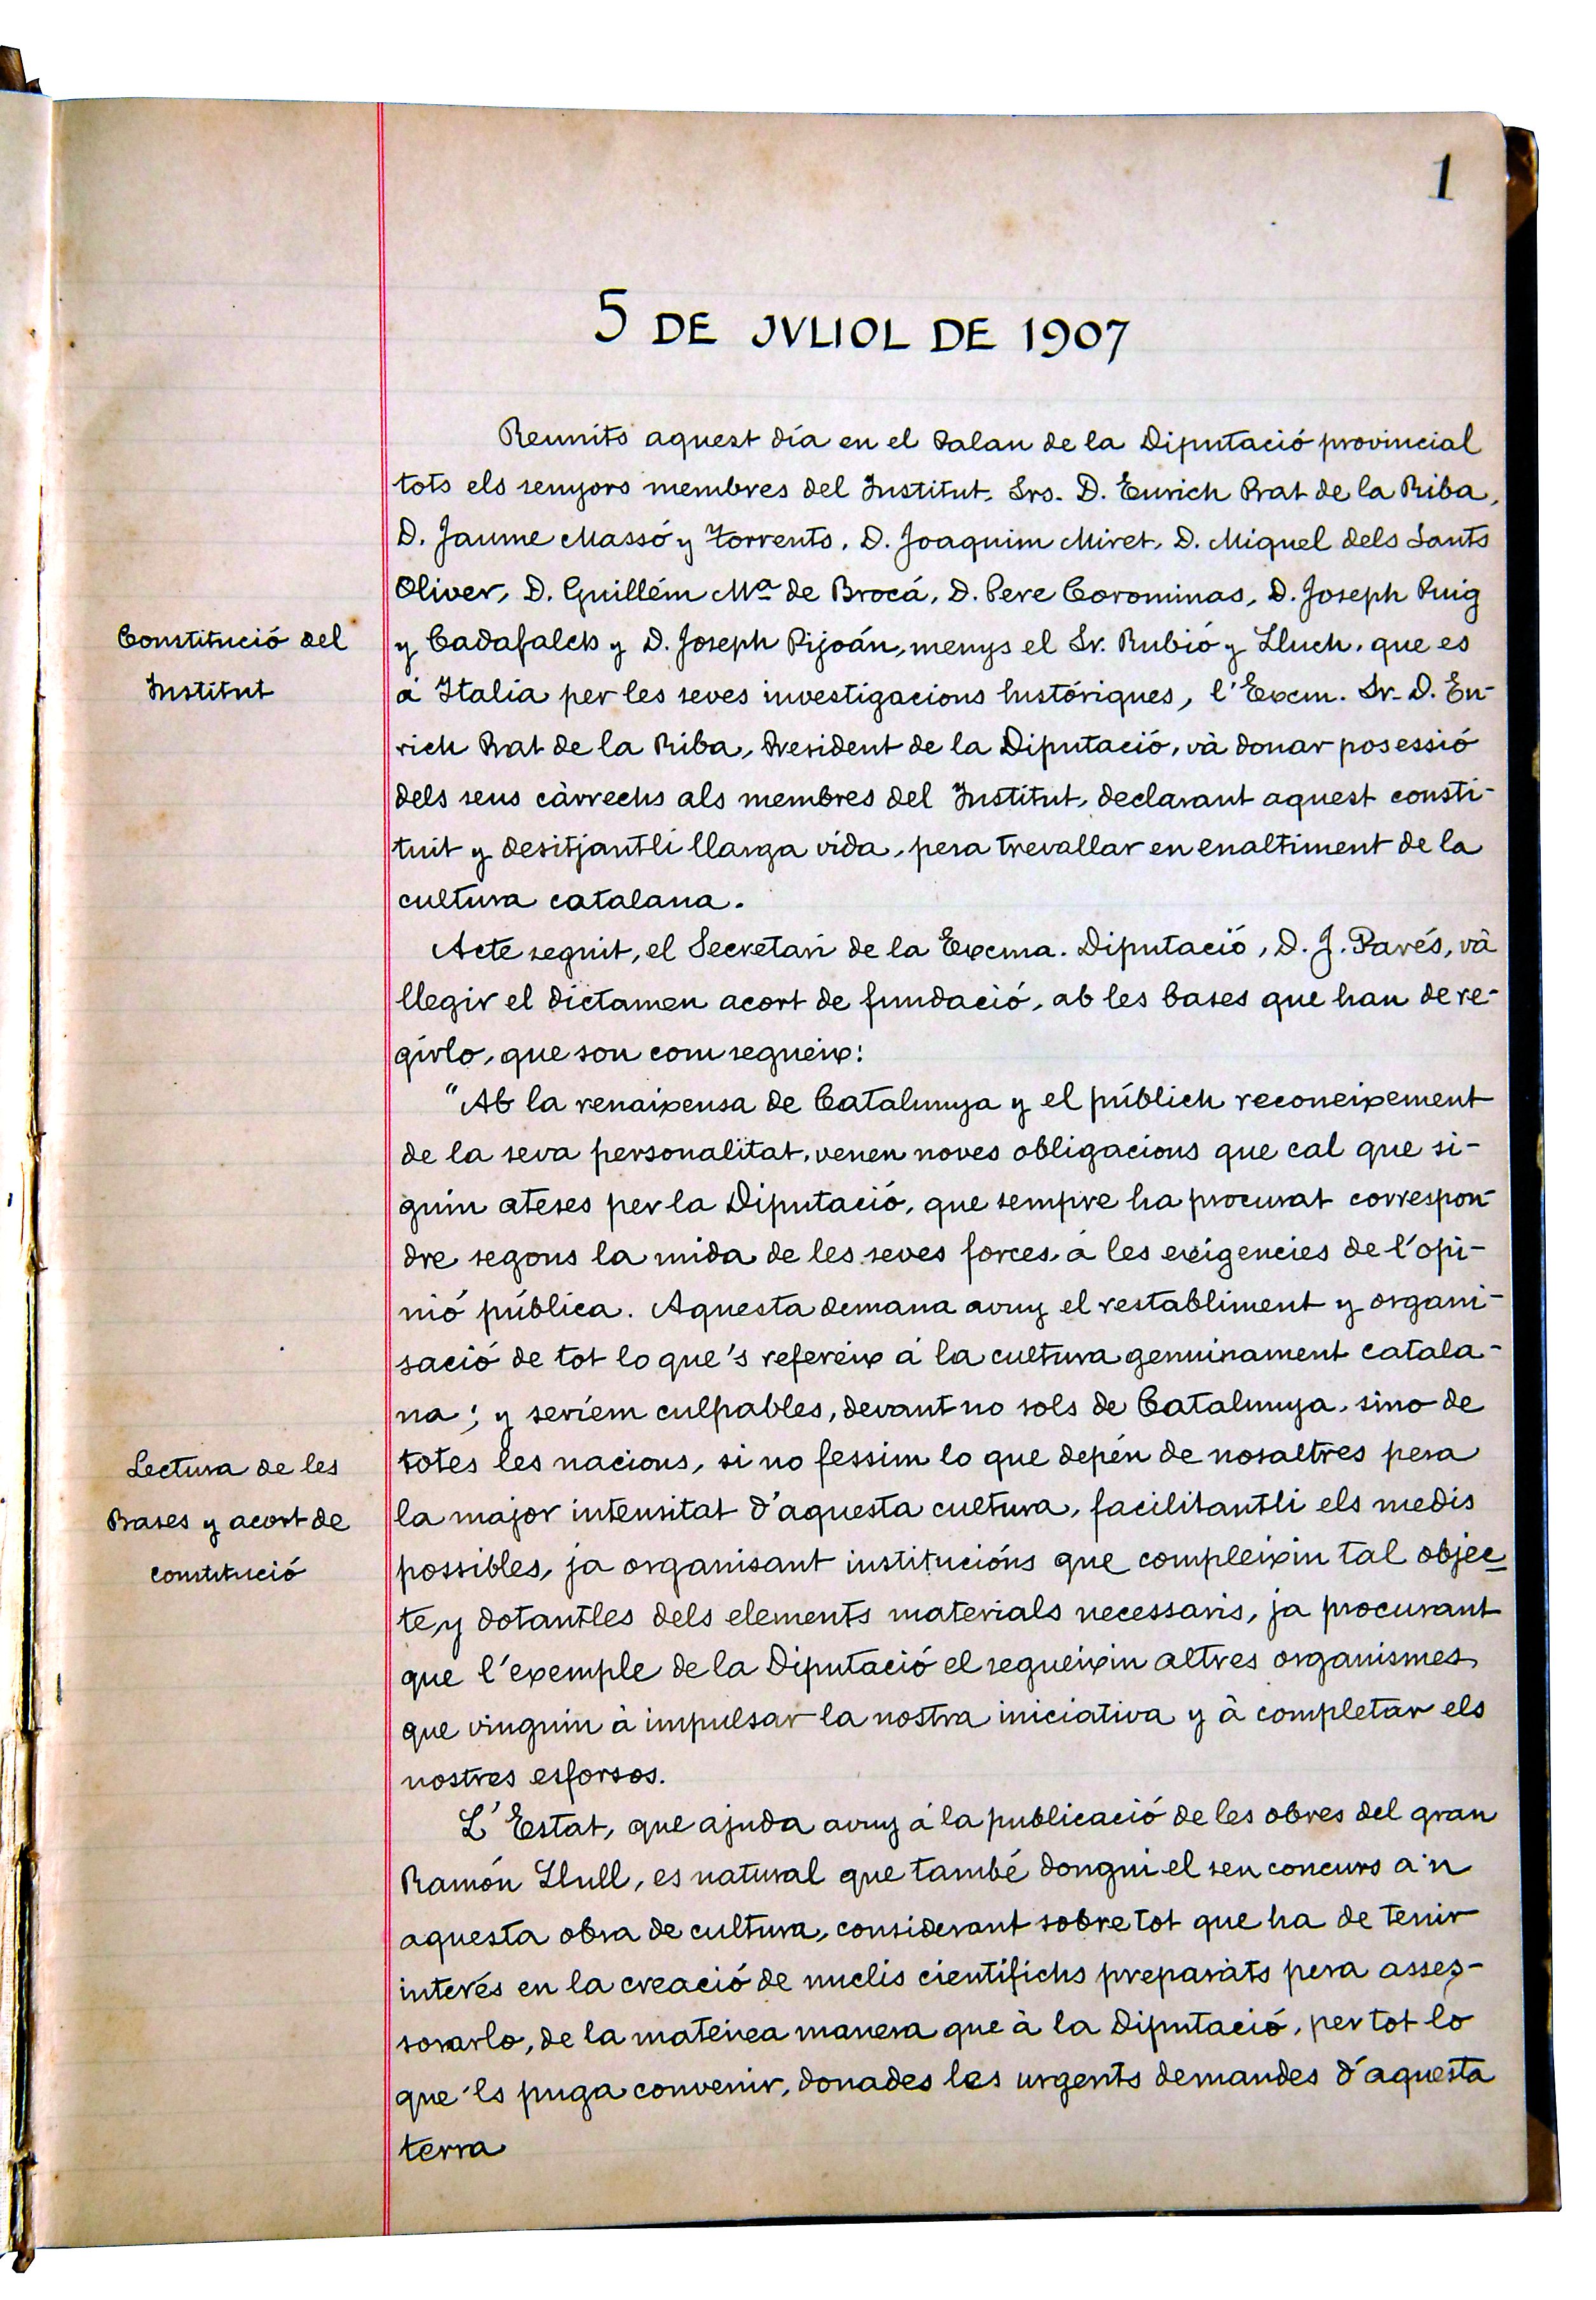 1
5 DE JVLIOL DE 1907
Reunits aquest día en el Palau de la Diputació provincial
tots els senyors membres del Institut. Srs. D. Enrich Prat de la Riba,
D. Jaume Massó y Torrents, D. Joaquim Miret, D. Miquel dels Sants
Oliver, D. Guillém Mª de Brocá, D. Pere Corominas, D. Joseph Puig
y Cadafalch y D. Joseph Pijoán, menys el Sr. Rubió y Lluch, que es
á Italia per les seves investigacions históriques, l'Excm. Sr. D. En-
rich Prat de la Riba, President de la Diputació, và donar posessió
dels seus càrrechs als membres del Institut, declarant aquest consti-
tuit y desitjantli llarga vida, pera trevallar en enaltiment de la
cultura catalana.
Constitució del
Institut
Acte seguit, el Secretari de la Excma. Diputació, D. J. Parés, và
llegir el dictamen acort de fundació, ab les bases que han de re-
girlo, que son com segueix:
"Ab la renaixensa de Catalunya y el públich reconeixement
de la seva personalitat, venen noves obligacions que cal que si-
guin ateses per la Diputació, que sempre ha procurat correspon-
dre segons la mida de les seves forces á les exigencies de l'opi-
nió pública. Aquesta demana avuy el restabliment y organi-
sació de tot lo que's refereix á la cultura genuinament catala-
na; y seríem culpables, devant no sols de Catalunya, sino de
totes les nacions, si no fessim lo que depén de nosaltres pera
la major intensitat d'aquesta cultura, facilitantli els medis
possibles, ja organisant institucións que compleixin tal objec
te, y dotantles dels elements materials necessaris, ja procurant
que l'exemple de la Diputació el segueixin altres organismes
que vinguin à impulsar la nostra iniciativa y à completar els
nostres esforsos.
Lectura de les
Bases y acort de
constitució
L'Estat, que ajuda avuy á la publicació de les obres del gran
Ramón Llull, es natural que també dongui el seu concurs a'n
aquesta obra de cultura, considerant sobre tot que ha de tenir
interés en la creació de nuclis científichs preparats pera asses-
sorarlo, de la mateixa manera que à la Diputació, per tot lo
que'ls puga convenir, donades les urgents demandes d'aquesta
terra